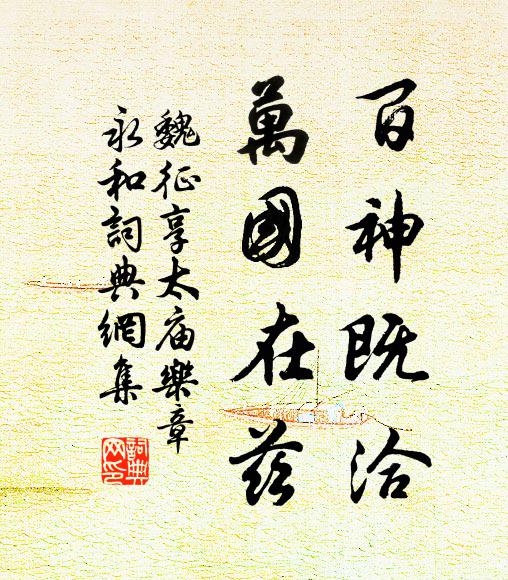 百神既洽
萬國在茲
魏征享太庙樂章
永和詞典網集
詞典
网印